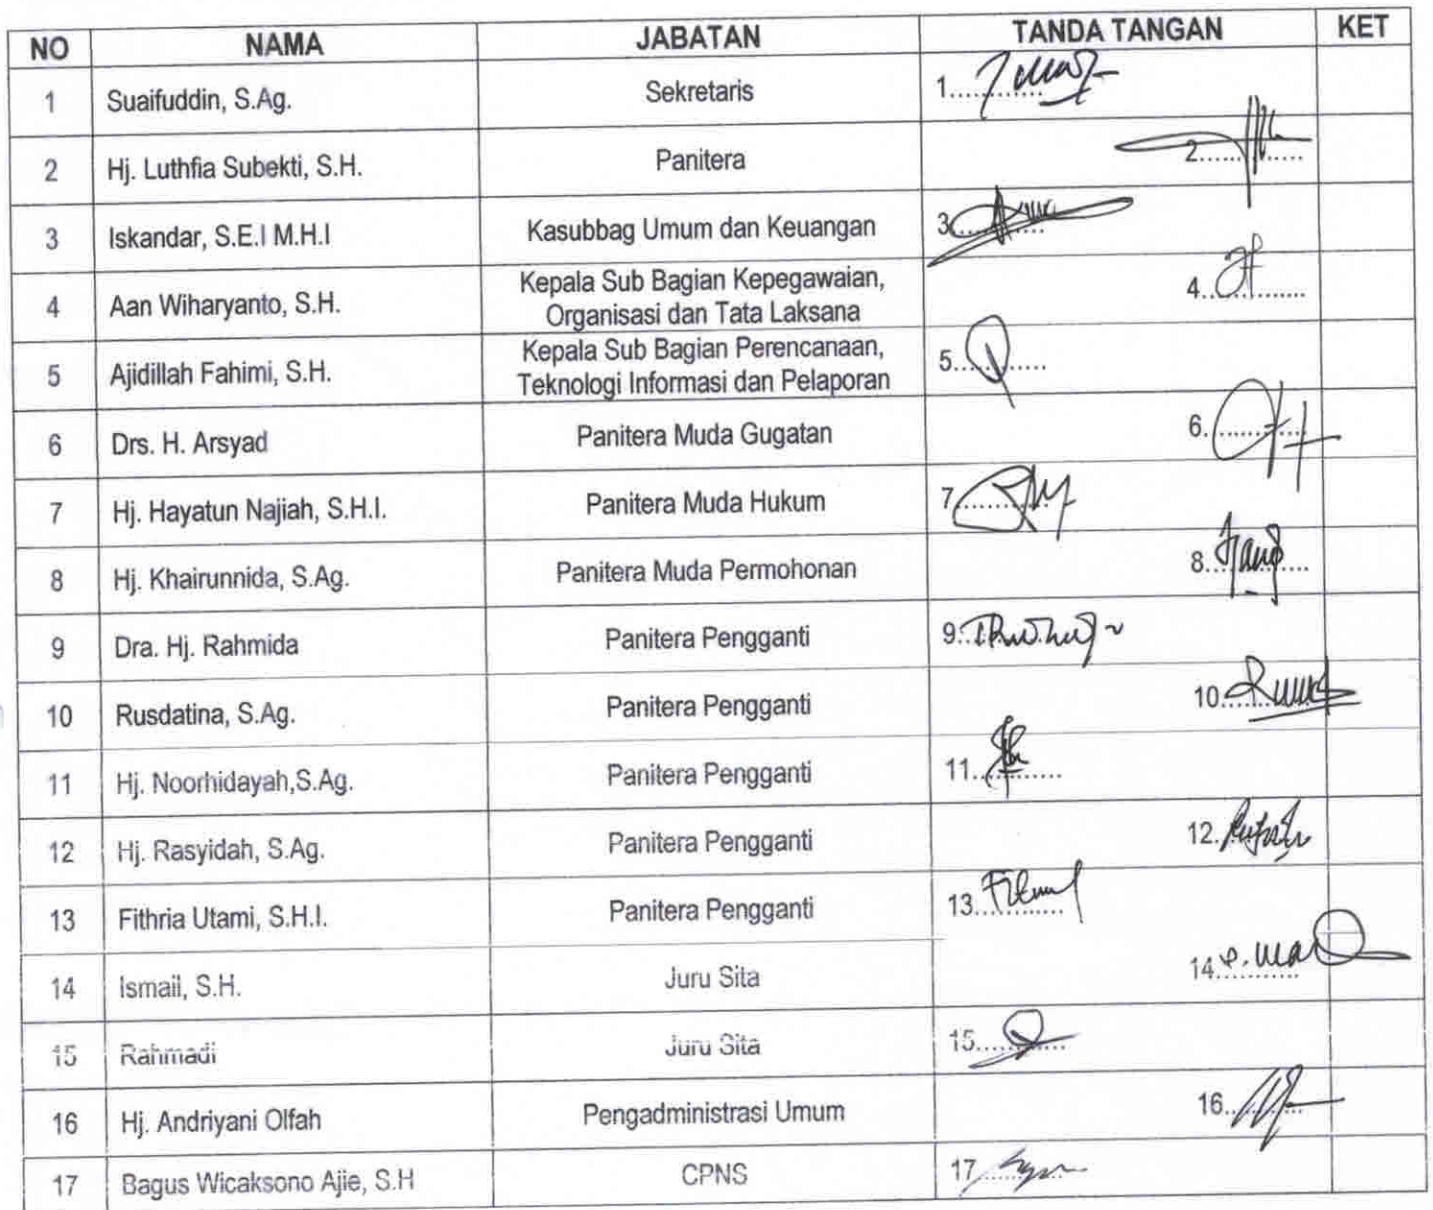 NO NAMA JABATAN TANDA TANGAN KET
1 Suaifuddin, S.Ag. Sekretaris 1............
2 Hj. Luthfia Subekti, S.H. Panitera 2............
3 Iskandar, S.E.I M.H.I Kasubbag Umum dan Keuangan 3............
4 Aan Wiharyanto, S.H. Kepala Sub Bagian Kepegawaian,
Organisasi dan Tata Laksana 4............
5 Ajidillah Fahimi, S.H. Kepala Sub Bagian Perencanaan,
Teknologi Informasi dan Pelaporan 5............
6 Drs. H. Arsyad Panitera Muda Gugatan 6............
7 Hj. Hayatun Najiah, S.H.I. Panitera Muda Hukum 7............
8 Hj. Khairunnida, S.Ag. Panitera Muda Permohonan 8............
9 Dra. Hj. Rahmida Panitera Pengganti 9............
10 Rusdatina, S.Ag. Panitera Pengganti 10............
11 Hj. Noorhidayah,S.Ag. Panitera Pengganti 11............
12 Hj. Rasyidah, S.Ag. Panitera Pengganti 12............
13 Fithria Utami, S.H.I. Panitera Pengganti 13............
14 Ismail, S.H. Juru Sita 14............
15 Rahmadi Juru Sita 15............
16 Hj. Andriyani Olfah Pengadministrasi Umum 16............
17 Bagus Wicaksono Ajie, S.H CPNS 17............